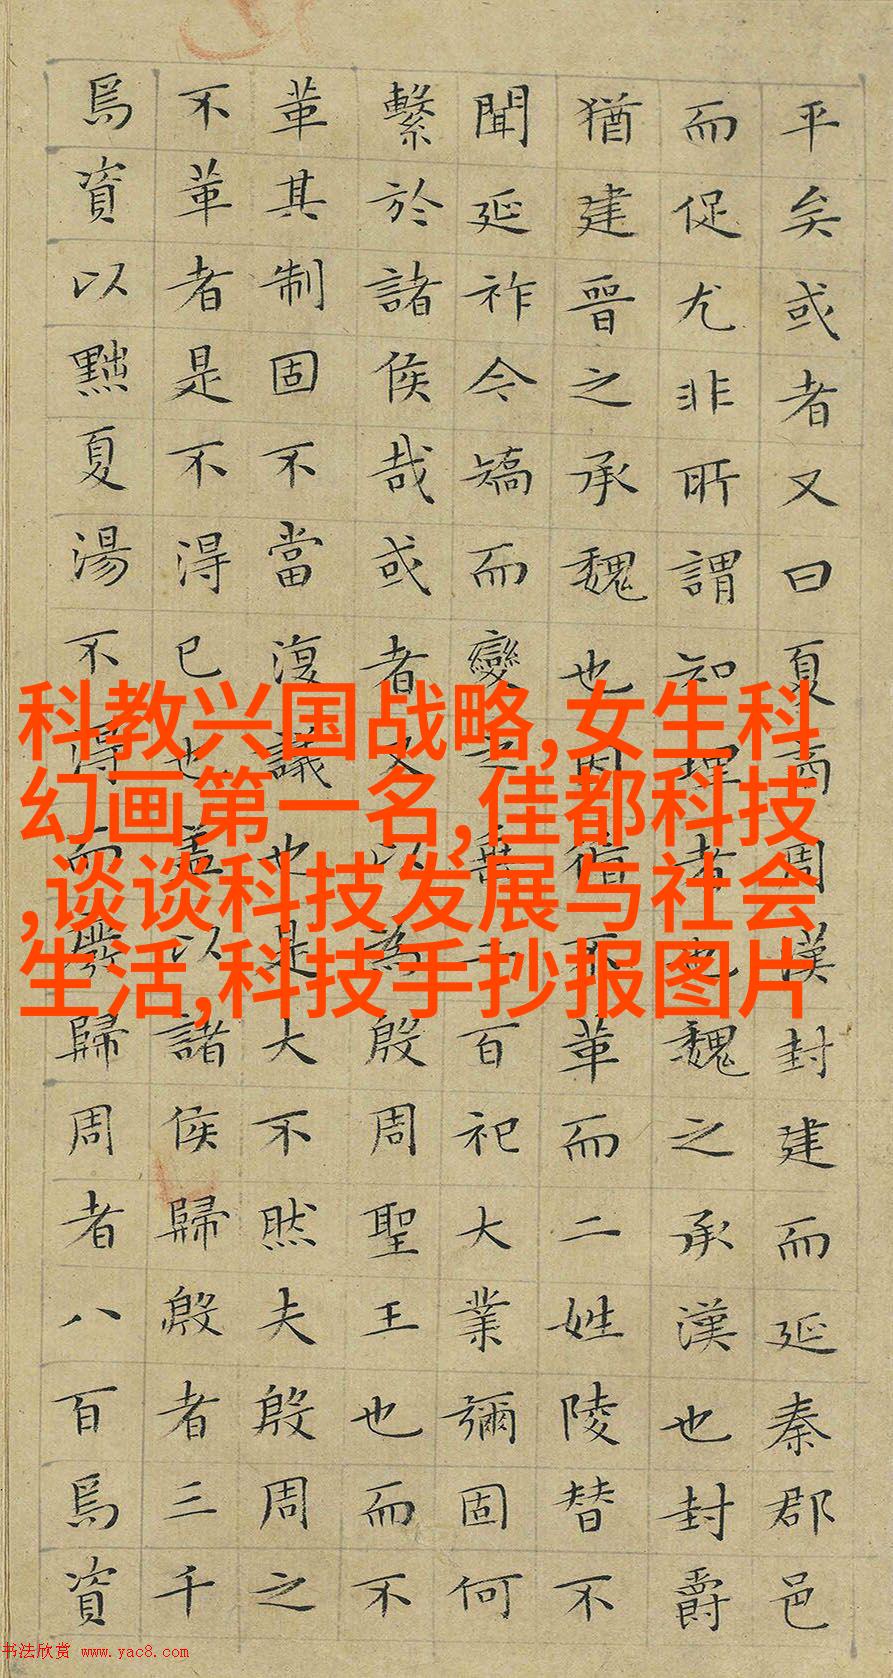 平矣或者又曰夏商周漢封建而延秦郡邑
而促尤非所謂知理者也魏之承漢也封爵
猶建晉之承魏也因循不革而二姓陵替不
聞延祚今矯而變之垂二百祀大業彌固何
繫於諸侯哉或者又以為殷周聖王也而不
革其制固不當復議也是大不然夫殷周之
不革者是不得已也蓋以諸侯歸殷者三千
焉資以黜夏湯不得而廢歸周者八百焉資
科教兴国战略,女生科
幻画第一名,佳都科技
,谈谈科技发展与社会
生活,科技手抄报图片
书法欣赏 www.yac8.com